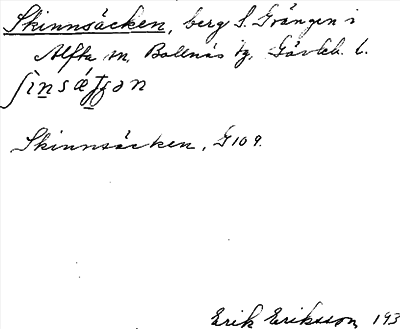 Skinnsäcken, berg S. Grängen i
Alfta sn, Bollnäs tg. Gävleb. l.
Skinnsäcken, G109.
Erik Eriksson 193